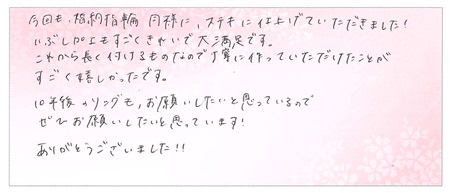 今回も、婚約指輪 同様に、ステキに仕上げていただきました!
いぶし加工もすごくきれいで大満足です。
これから長く付けるものなので丁寧に作っていただけたことが
すごく嬉しかったです。
10年後のリングも、お願いしたいと思っているので
ぜひお願いしたいと思っています!
ありがとうございました!!